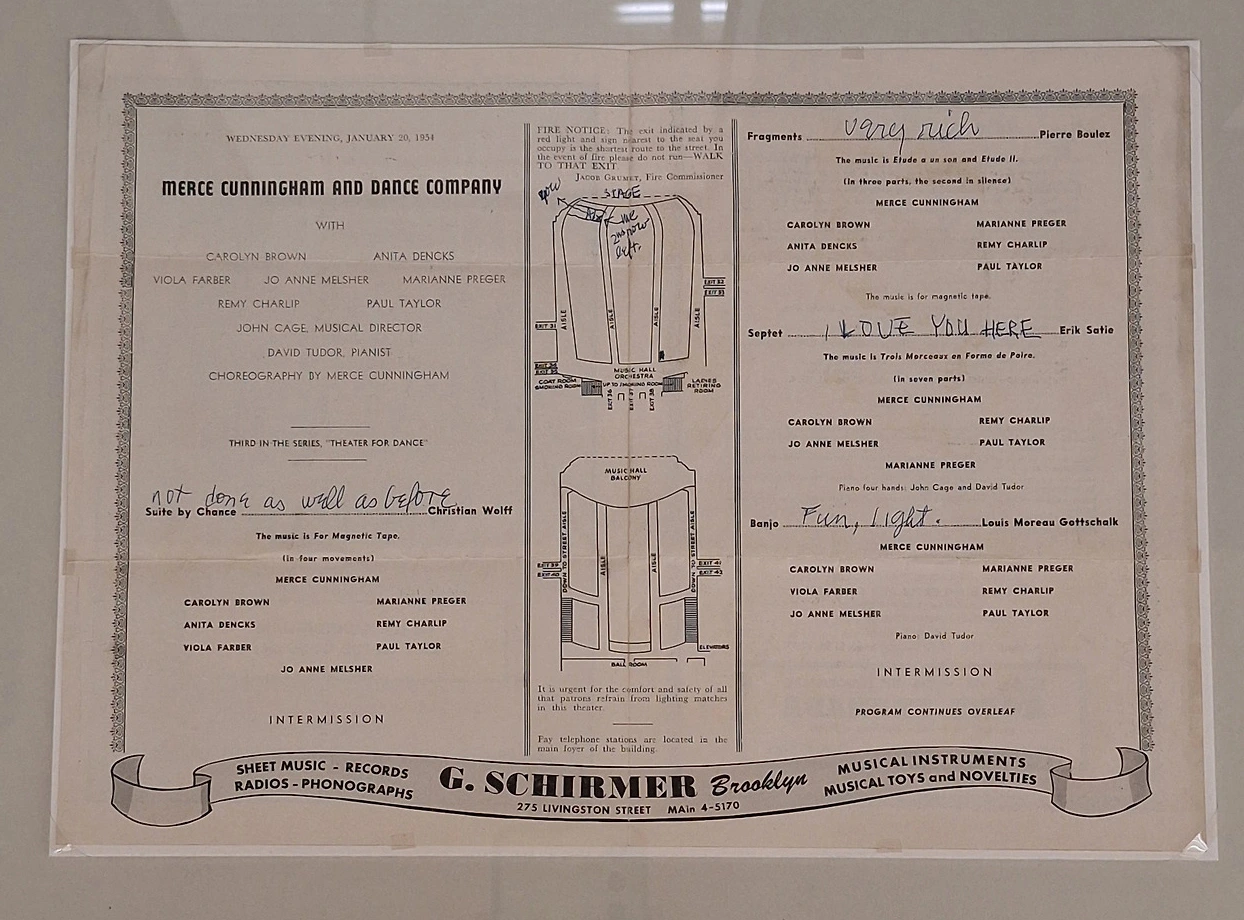 WEDNESDAY EVENING, JANUARY 20, 1954
MERCE CUNNINGHAM AND DANCE COMPANY
WITH
CAROLYN BROWN ANITA DENCKS
VIOLA FARBER JO ANNE MELSHER MARIANNE PREGER
REMY CHARLIP PAUL TAYLOR
JOHN CAGE, MUSICAL DIRECTOR
DAVID TUDOR, PIANIST
CHOREOGRAPHY BY MERCE CUNNINGHAM
THIRD IN THE SERIES, "THEATER FOR DANCE"
not done as well as before
Suite by Chance Christian Wolff
The music is For Magnetic Tape.
(in four movements)
MERCE CUNNINGHAM
CAROLYN BROWN MARIANNE PREGER
ANITA DENCKS REMY CHARLIP
VIOLA FARBER PAUL TAYLOR
JO ANNE MELSHER
INTERMISSION
FIRE NOTICE: The exit indicated by a
red light and sign nearest to the seat you
occupy is the shortest route to the street. In
the event of fire please do not run—WALK
TO THAT EXIT.
JACOB GRUMET, Fire Commissioner
STAGE
me
2nd row
left.
EXIT 32
EXIT 33
AISLE
AISLE
AISLE
AISLE
EXIT 31
EXIT 34
EXIT 35
MUSIC HALL
ORCHESTRA
COAT ROOM
SMOKING ROOM
UP TO SMOKING ROOM
LADIES
RETIRING
ROOM
EXIT 36
EXIT 37
EXIT 38
MUSIC HALL
BALCONY
DOWN TO STREET AISLE
AISLE
AISLE
DOWN TO STREET AISLE
EXIT 39
EXIT 40
EXIT 41
EXIT 42
ELEVATORS
BALL ROOM
It is urgent for the comfort and safety of all
that patrons refrain from lighting matches
in this theater.
Pay telephone stations are located in the
main foyer of the building.
very rich
Fragments Pierre Boulez
The music is Etude a un son and Etude II.
(In three parts, the second in silence)
MERCE CUNNINGHAM
CAROLYN BROWN MARIANNE PREGER
ANITA DENCKS REMY CHARLIP
JO ANNE MELSHER PAUL TAYLOR
The music is for magnetic tape.
Septet I LOVE YOU HERE Erik Satie
The music is Trois Morceaux en Forme de Poire.
(in seven parts)
MERCE CUNNINGHAM
CAROLYN BROWN REMY CHARLIP
JO ANNE MELSHER PAUL TAYLOR
MARIANNE PREGER
Piano four hands: John Cage and David Tudor
Banjo Fun, light. Louis Moreau Gottschalk
MERCE CUNNINGHAM
CAROLYN BROWN MARIANNE PREGER
VIOLA FARBER REMY CHARLIP
JO ANNE MELSHER PAUL TAYLOR
Piano: David Tudor
INTERMISSION
PROGRAM CONTINUES OVERLEAF
SHEET MUSIC - RECORDS
RADIOS - PHONOGRAPHS
G. SCHIRMER Brooklyn
275 LIVINGSTON STREET MAin 4-5170
MUSICAL INSTRUMENTS
MUSICAL TOYS and NOVELTIES